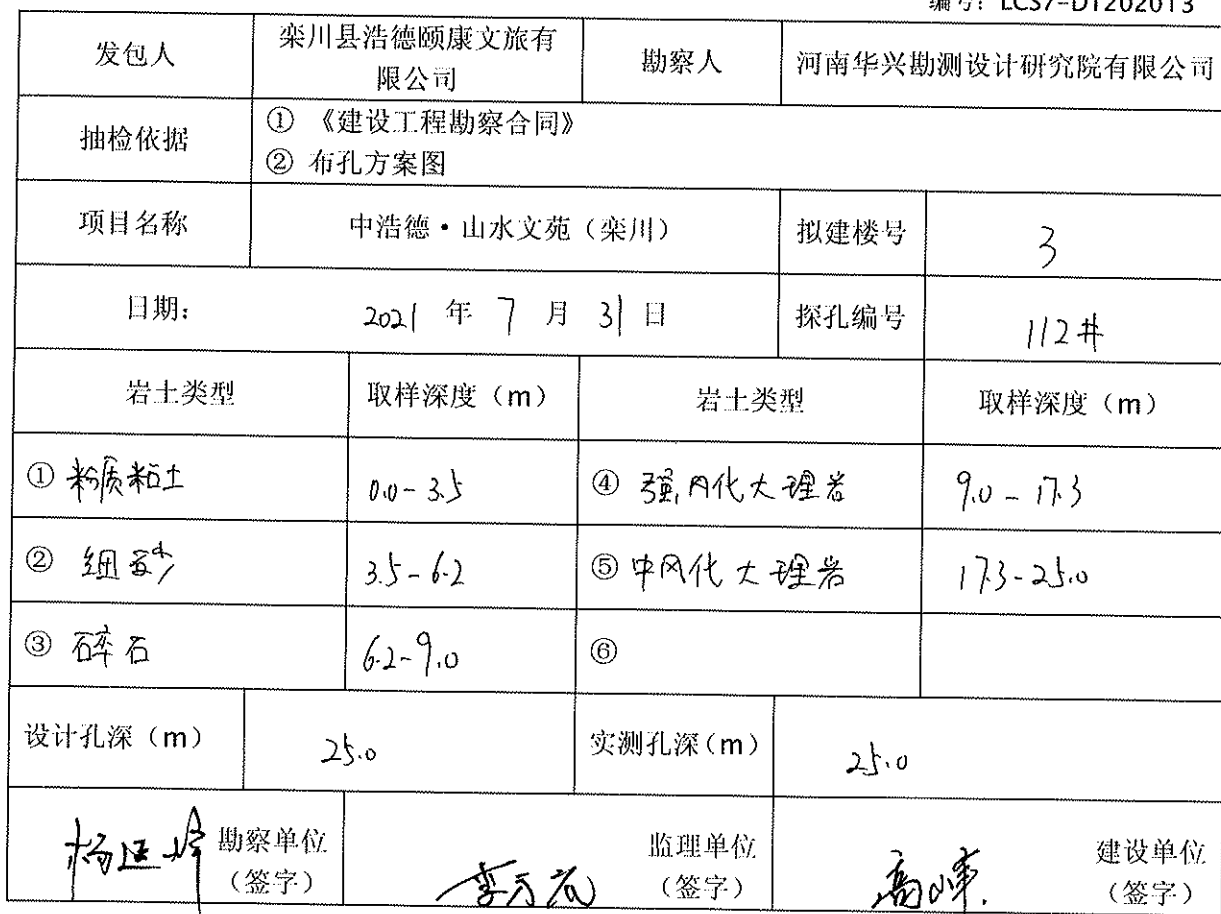 编号：LCS7-DT202013
发包人
栾川县浩德颐康文旅有
限公司
勘察人
河南华兴勘测设计研究院有限公司
抽检依据
① 《建设工程勘察合同》
② 布孔方案图
项目名称
中浩德·山水文苑（栾川）
拟建楼号
3
日期：
2021 年 7 月 31 日
探孔编号
112#
岩土类型
取样深度（m）
岩土类型
取样深度（m）
① 粉质粘土
0.0-3.5
④ 强风化大理岩
9.0-17.3
② 细砂
3.5-6.2
⑤ 中风化大理岩
17.3-25.0
③ 碎石
6.2-9.0
⑥
设计孔深（m）
25.0
实测孔深（m）
25.0
勘察单位
（签字）
监理单位
（签字）
高峰
建设单位
（签字）